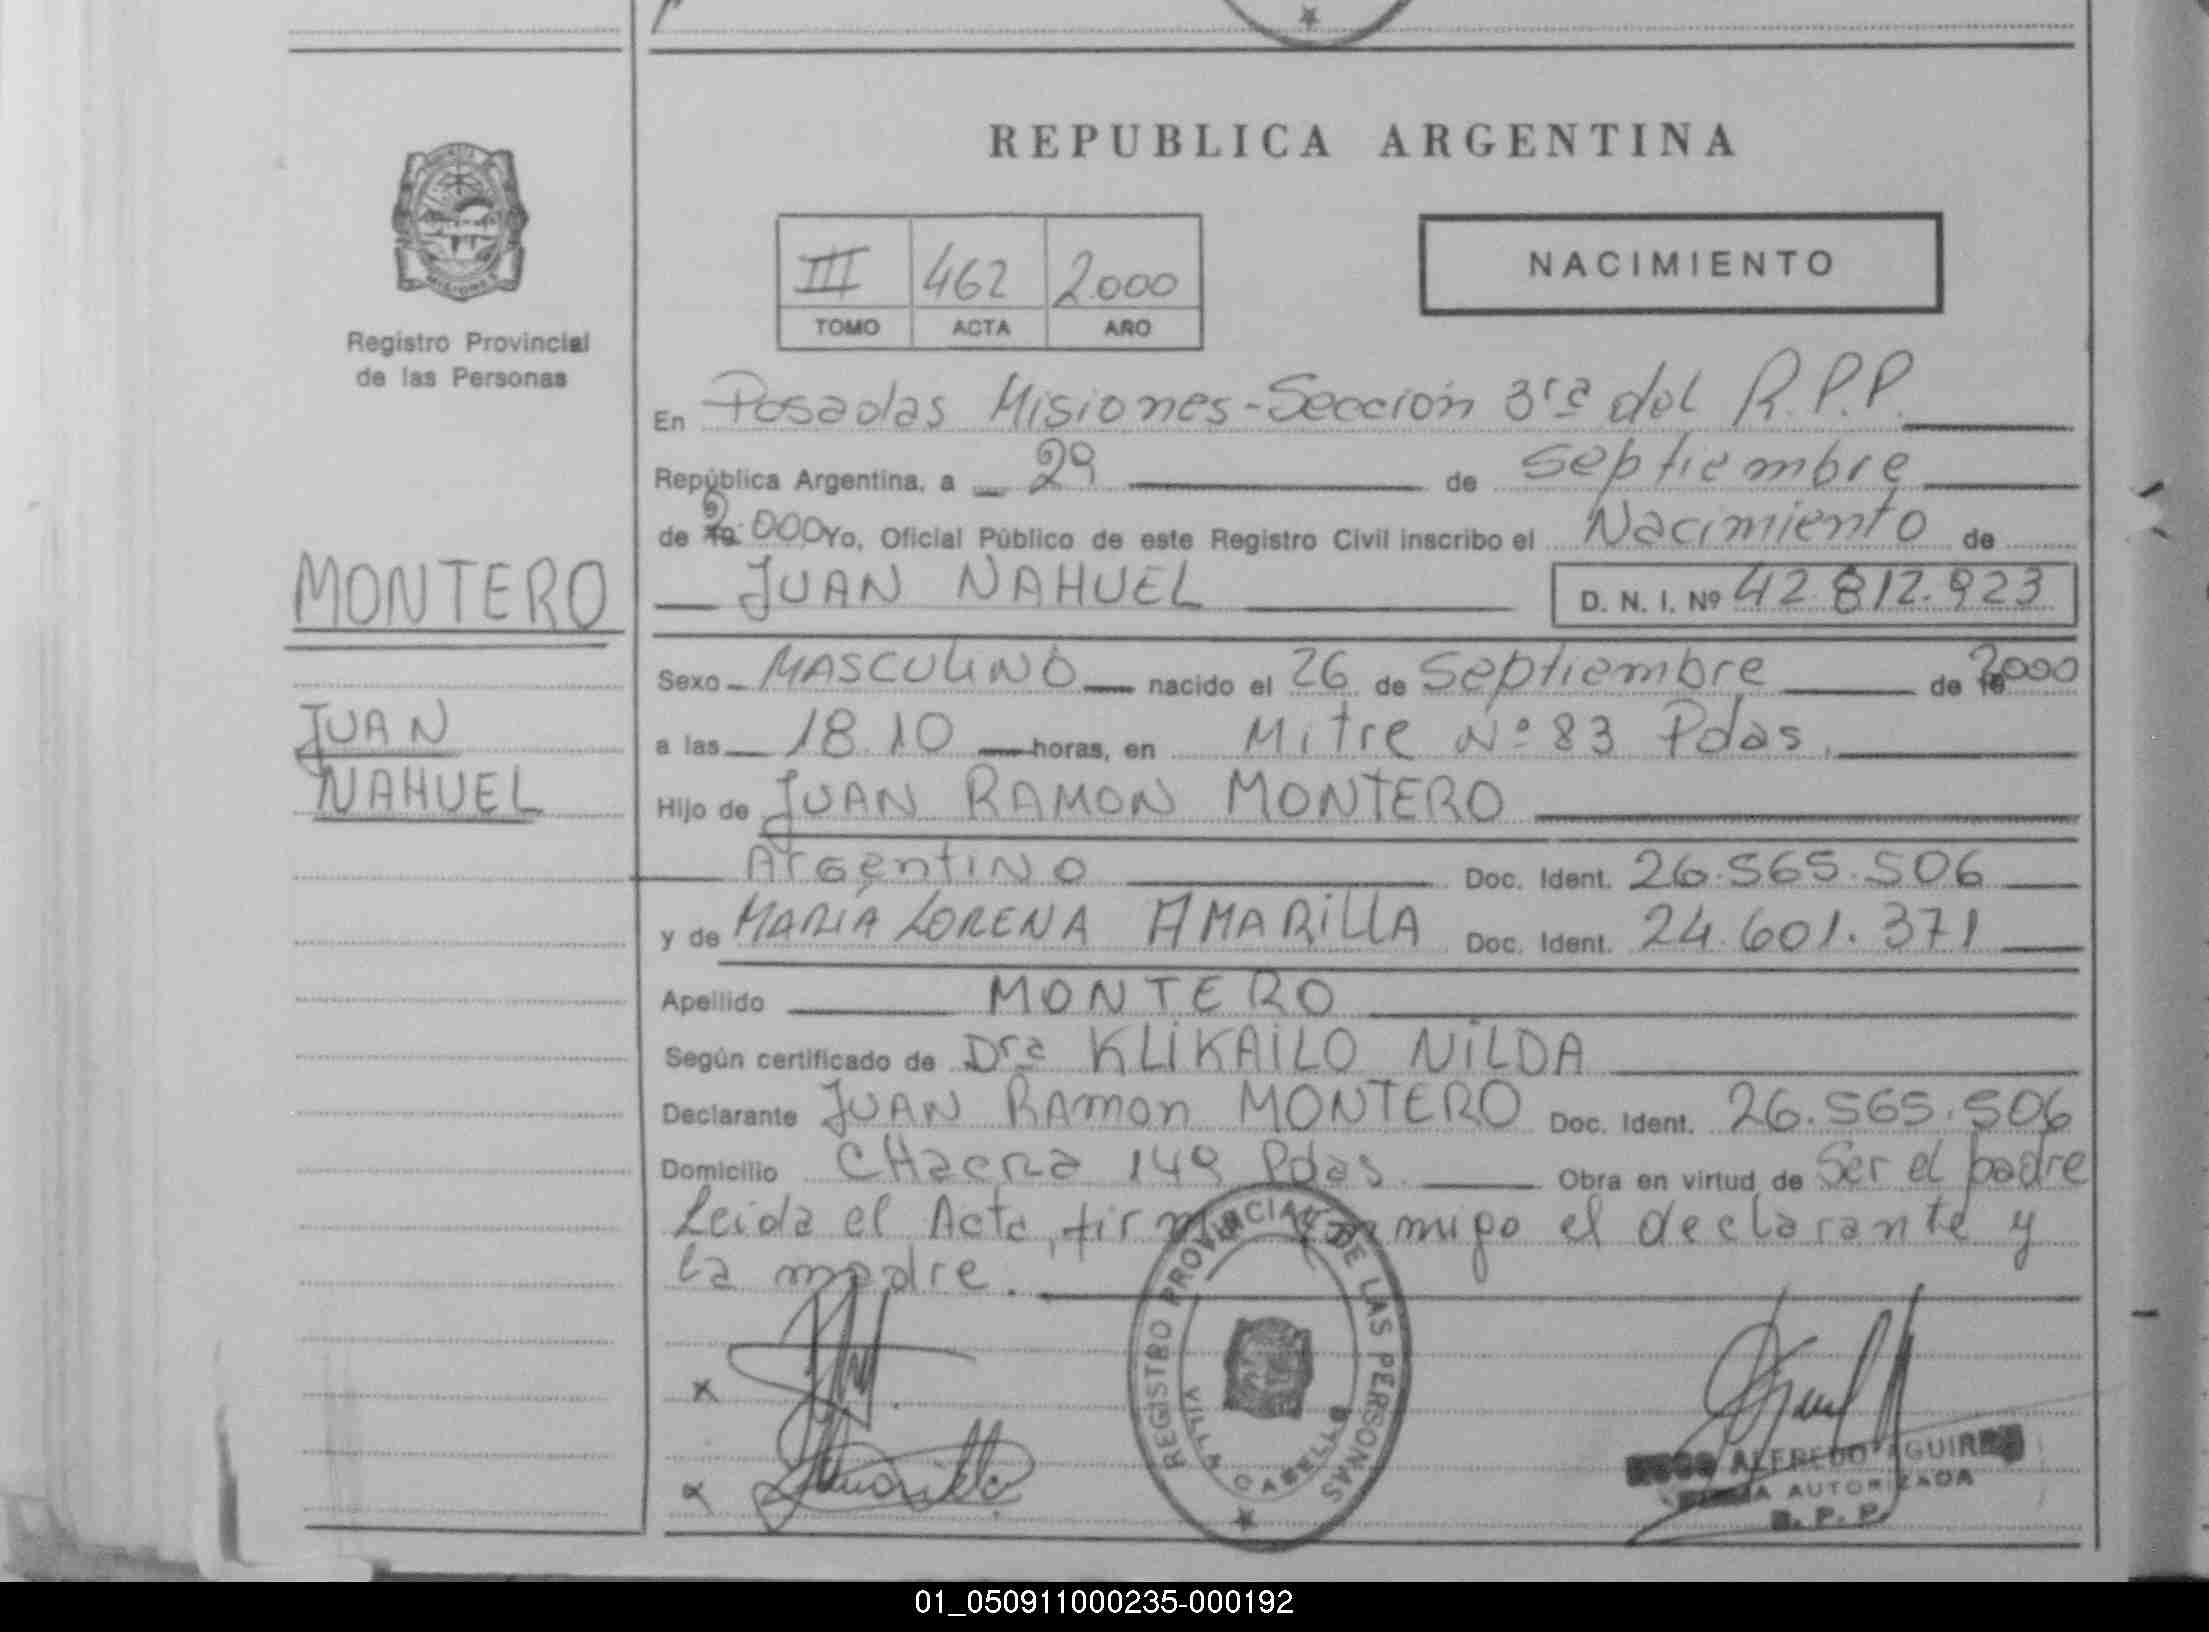 REPUBLICA ARGENTINA
Registro Provincial
de las Personas
III 462 2.000
TOMO ACTA AÑO
NACIMIENTO
En Posadas Misiones - Sección 3ra del R.P.P.
República Argentina, a 29 de Septiembre
de 19 2.000 Yo, Oficial Público de este Registro Civil inscribo el Nacimiento de
MONTERO
JUAN NAHUEL D. N. I. Nº 42.812.923
Sexo MASCULINO nacido el 26 de Septiembre de 19 2000
JUAN
a las 18.10 horas, en Mitre Nº 83 Pdas.
NAHUEL
Hijo de JUAN RAMON MONTERO
Argentino Doc. Ident. 26.565.506
y de MARIA LORENA AMARILLA Doc. Ident. 24.601.371
Apellido MONTERO
Según certificado de Dra KLIKAILO NILDA
Declarante JUAN RAMON MONTERO Doc. Ident. 26.565.506
Domicilio CHacra 149 Pdas. Obra en virtud de Ser el padre
Leida el Acta, firma conmigo el declarante y
la madre.
REGISTRO PROVINCIAL DE LAS PERSONAS
VILLA CABELLO
ALFREDO AGUIRRE
AUTORIZADA
R. P. P.
01_050911000235-000192